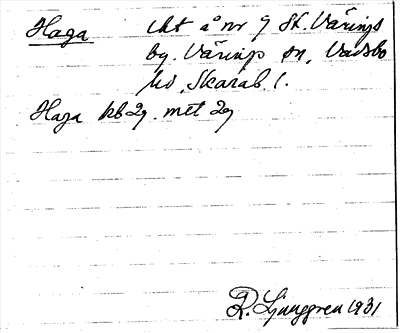 Haga lht å nr 9 St. Värings
by, Värings sn, Vadsbo
hd, Skarab. l.
Haga kb 29. met 29
R. Ljunggren 1931